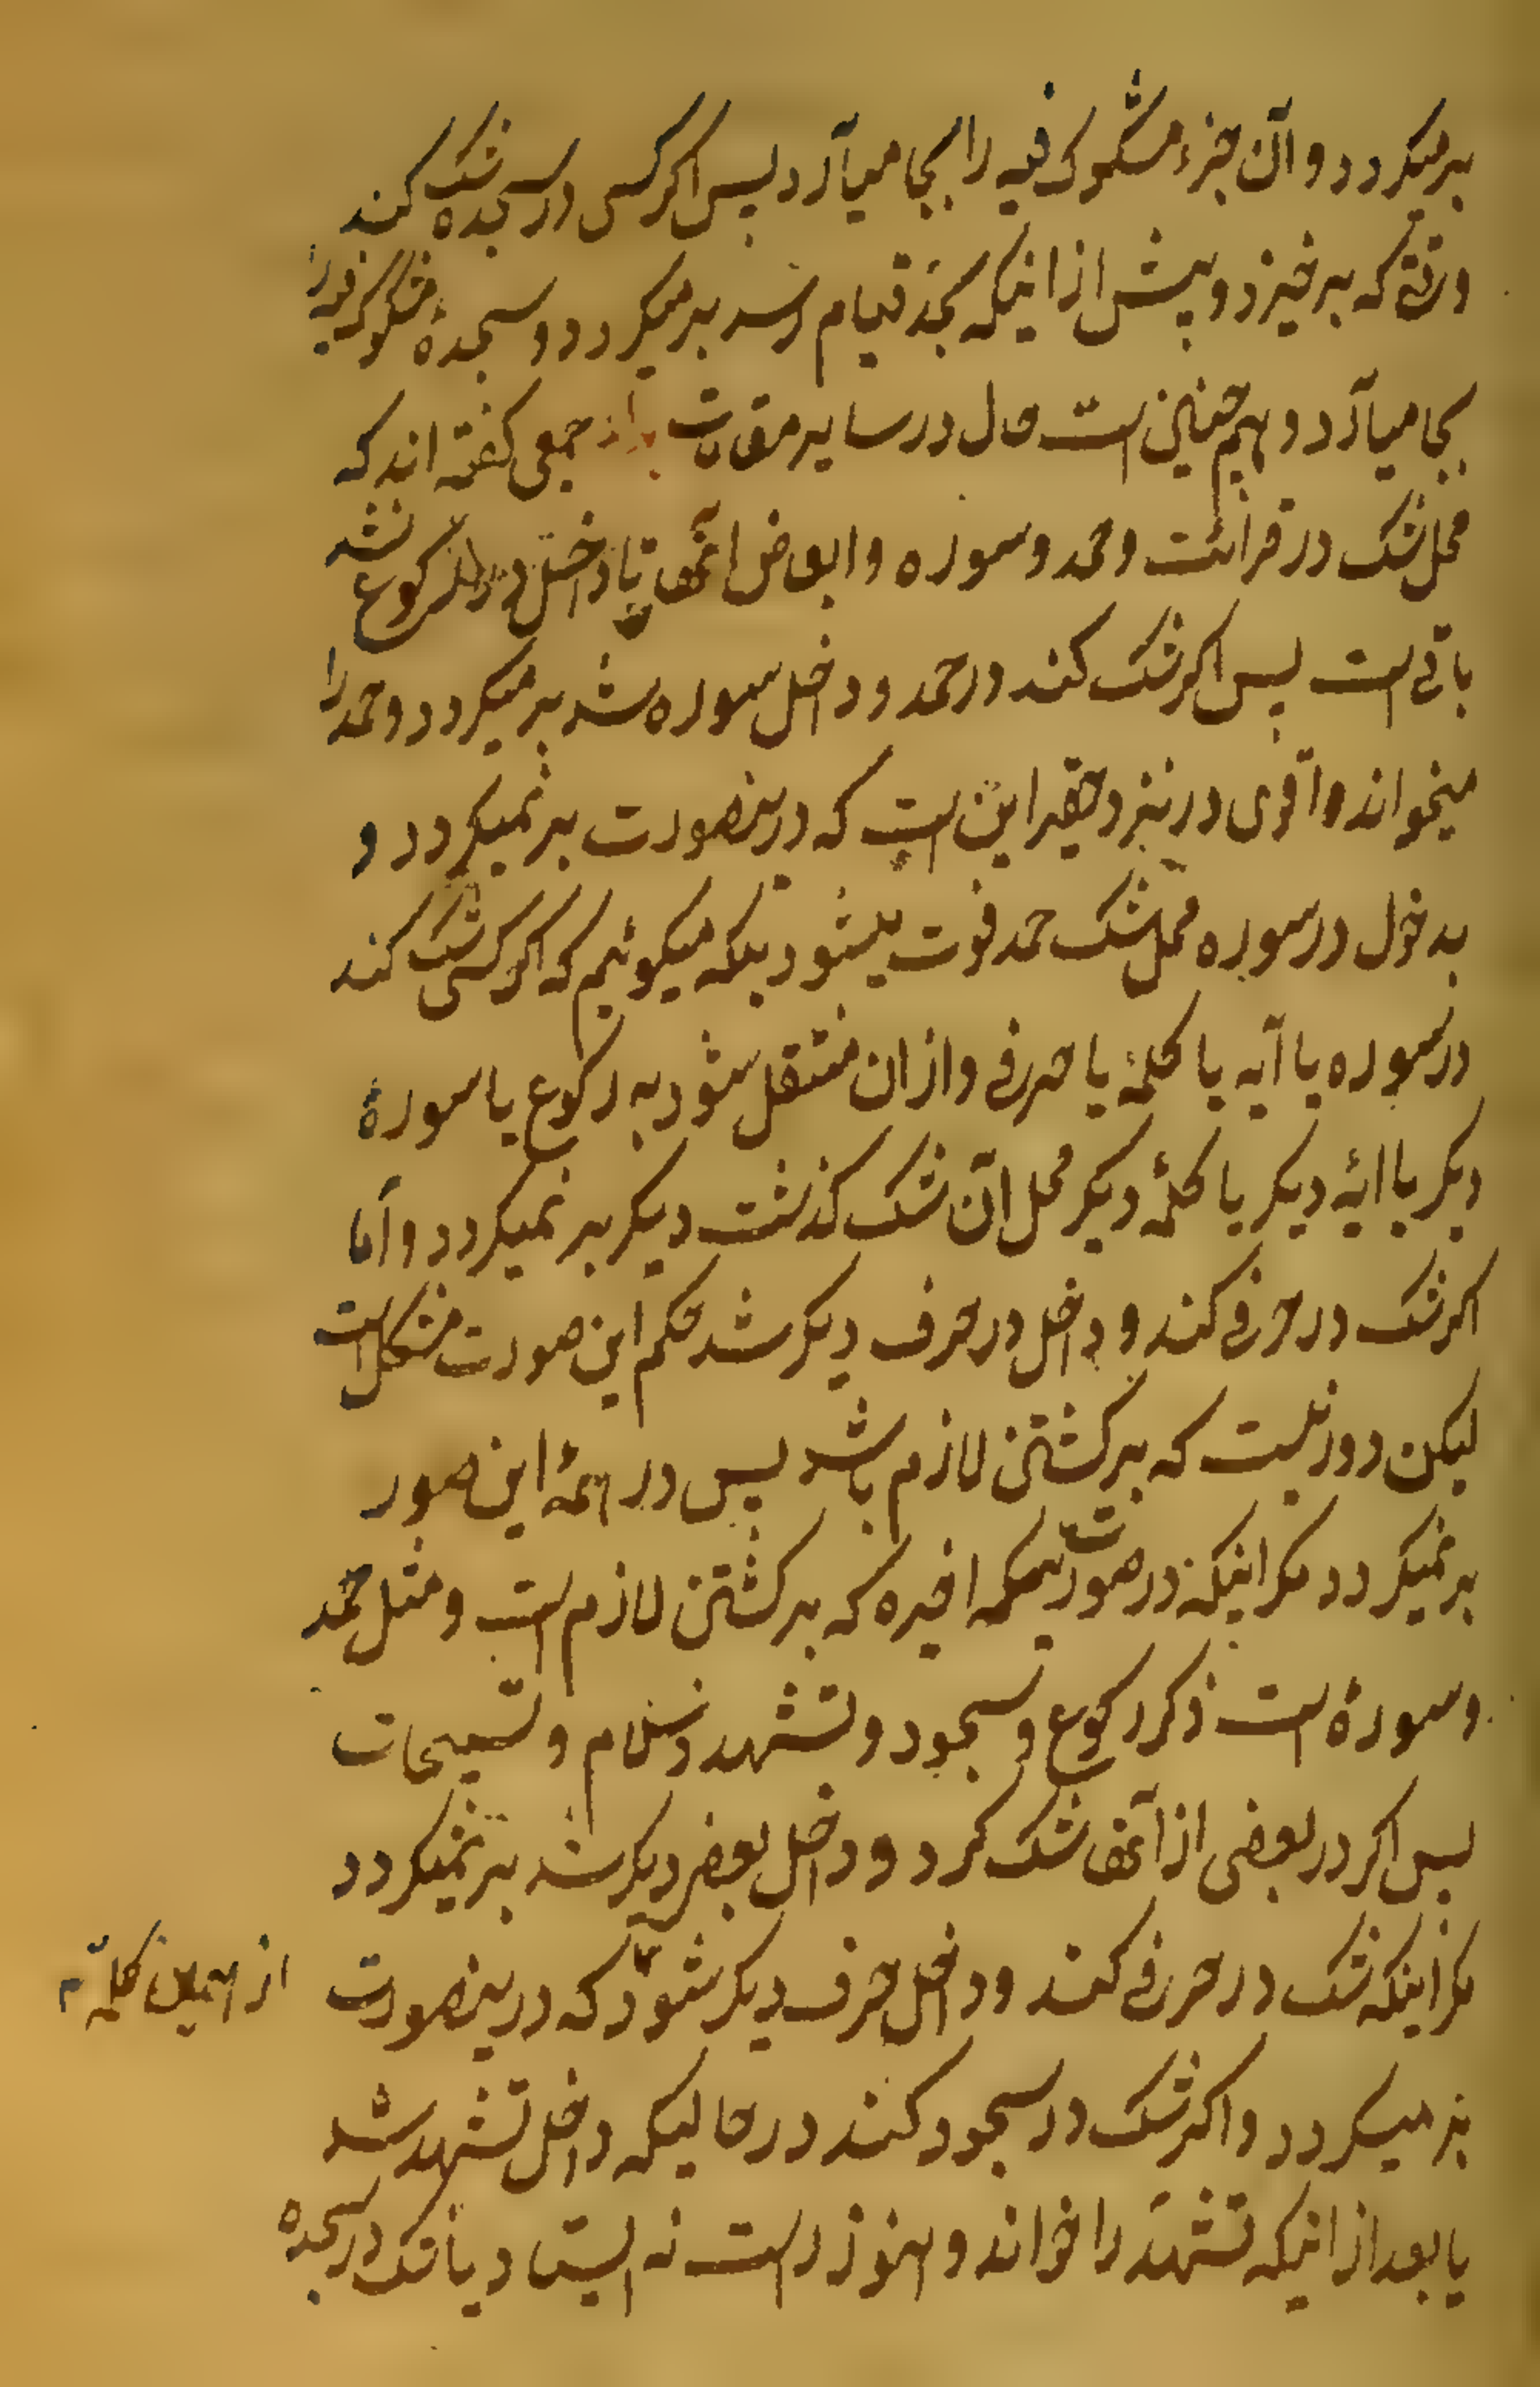 برمیکردد و آن جزء مشکوک فیه را بجا میآرد پس اکر کسی در سجده شک کند
وقتیکه برخیزد و پیش از اینکه بحد قیام رسد برمیکردد و سجدهٔ مشکوک فیه را
بجا میآرد و همچنین است حال در سایر مقامات جمعی کفته اند که
محل شک در قرائت و حمد و سوره و ابعاض آنها تا داخل در رکوع نشد
باقی است پس اکر شک کند در حمد و داخل سوره شد برمیکردد و حمد را
میخواند و اقوی در نزد حقیر این است که درینصورت برنمیکردد و
بدخول در سوره محل شک حمد فوت میشود بلکه میکوئیم که اکر کسی شک کند
در سوره یا آیه یا کلمهٔ یا حرفی و از ان منتقل شود به رکوع یا سورهٔ
دیکر یا ایهٔ دیکر یا کلمهٔ دیکر محل آن شک کذشت دیکر برنمیکردد و اما
اکر شک در حرفی کند و داخل در حرف دیکر شد حکم این صورت مشکل است
لیکن دور نیست که برکشتن لازم باشد پس در همهٔ این صور
برنمیکردد مکر اینکه در صورت اخیره که برکشتن لازم است و مثل حمد
و سوره است ذکر رکوع و سجود و تشهد و سلام و تسبیحات
پس اکر در بعضی از آنها شک کرد و داخل بعض دیکر شد برنمیکردد
مکر اینکه شک در حرفی کند و داخل حرف دیکر شود که درینصورت
از همین کلمه
برمیکردد و اکر شک در سجود کند در حالیکه داخل تشهد شد
یا بعد از اینکه تشهد را خواند و هنوز راست نه ایستاد یا شک در سجده